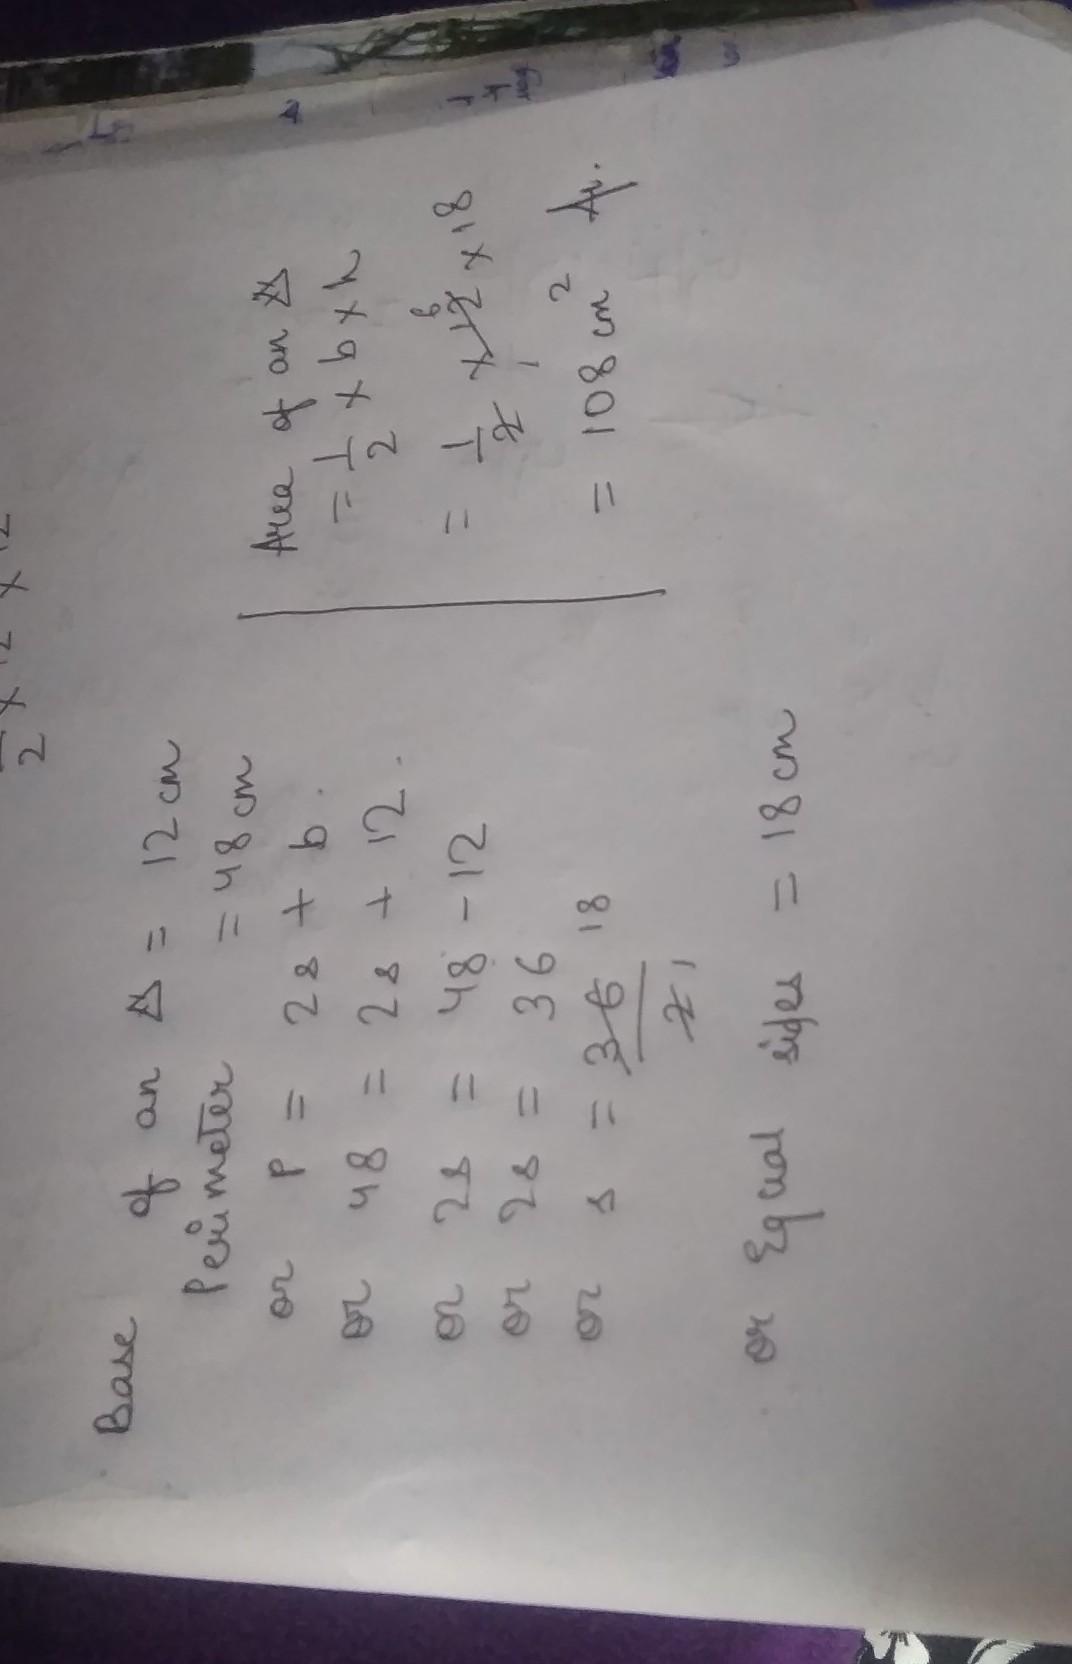 2 × 12 × 12
Base of an Δ = 12 cm
Perimeter = 48 cm
or P = 2s + b.
or 48 = 2s + 12.
or 2s = 48 - 12
or 2s = 36
or s = 36/2 18 1
or Equal sides = 18 cm
Area of an Δ
= 1/2 × b × h
= 1/2 × 12 × 18 6 1
= 108 cm²